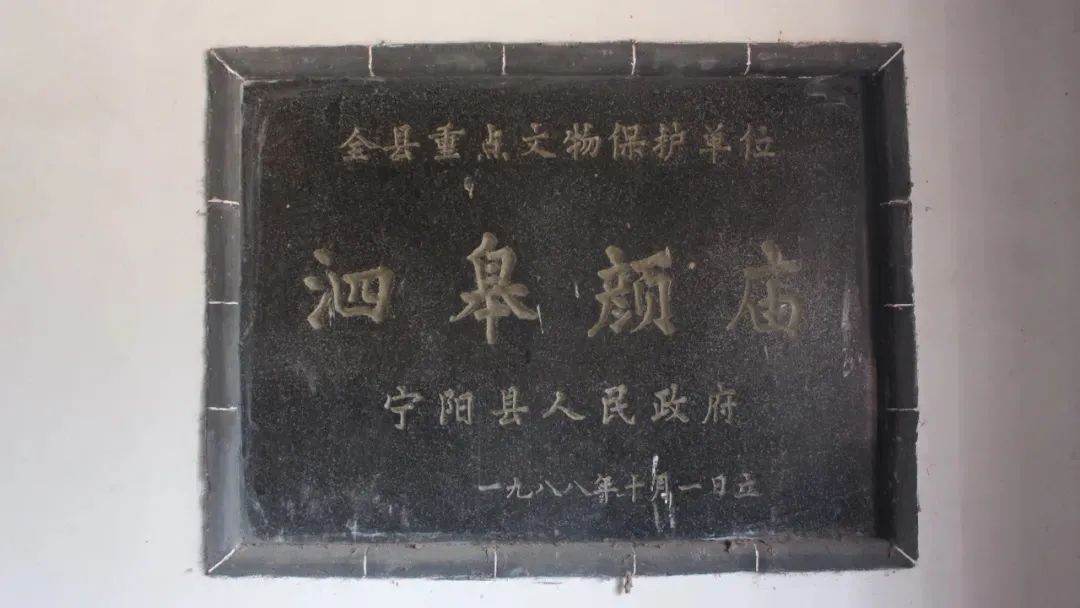 全县重点文物保护单位
泗皋颜庙
宁阳县人民政府
一九八八年十月一日立